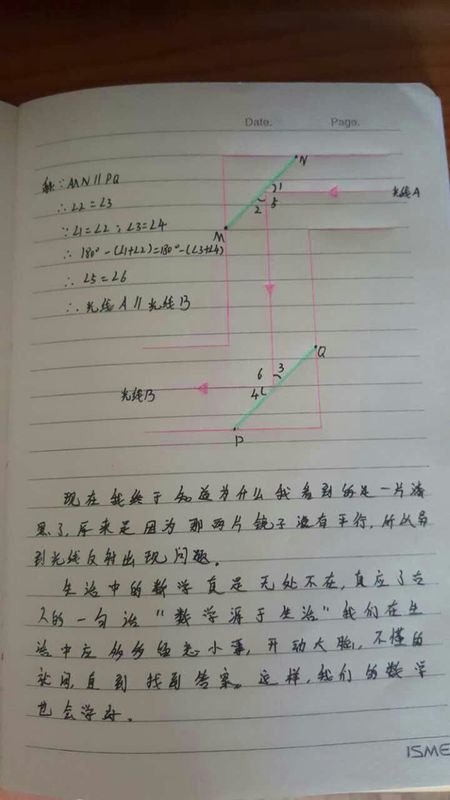 Date.
Page.
解∵MN∥PQ
∴∠2=∠3
∵∠1=∠2;∠3=∠4
∴180°-(∠1+∠2)=180°-(∠3+∠4)
∴∠5=∠6
∴光线A∥光线B
N
1
光线A
2 5
M
Q
6 3
光线B
4
P
现在我终于知道为什么我看到的是一片漆
黑了,原来是因为那两片镜子没有平行,所以导
到光线反射出现问题。
生活中的数学真是无处不在,真应了古
人的一句话"数学源于生活"我们在生
活中应多多留意小事,开动大脑,不懂的
就问,直到找到答案。这样,我们的数学
也会学好。
ISME